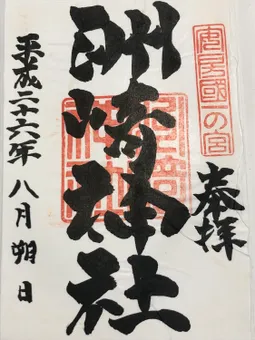 安房國一の宮
奉拝
洲崎神社
平成二十六年八月朔日